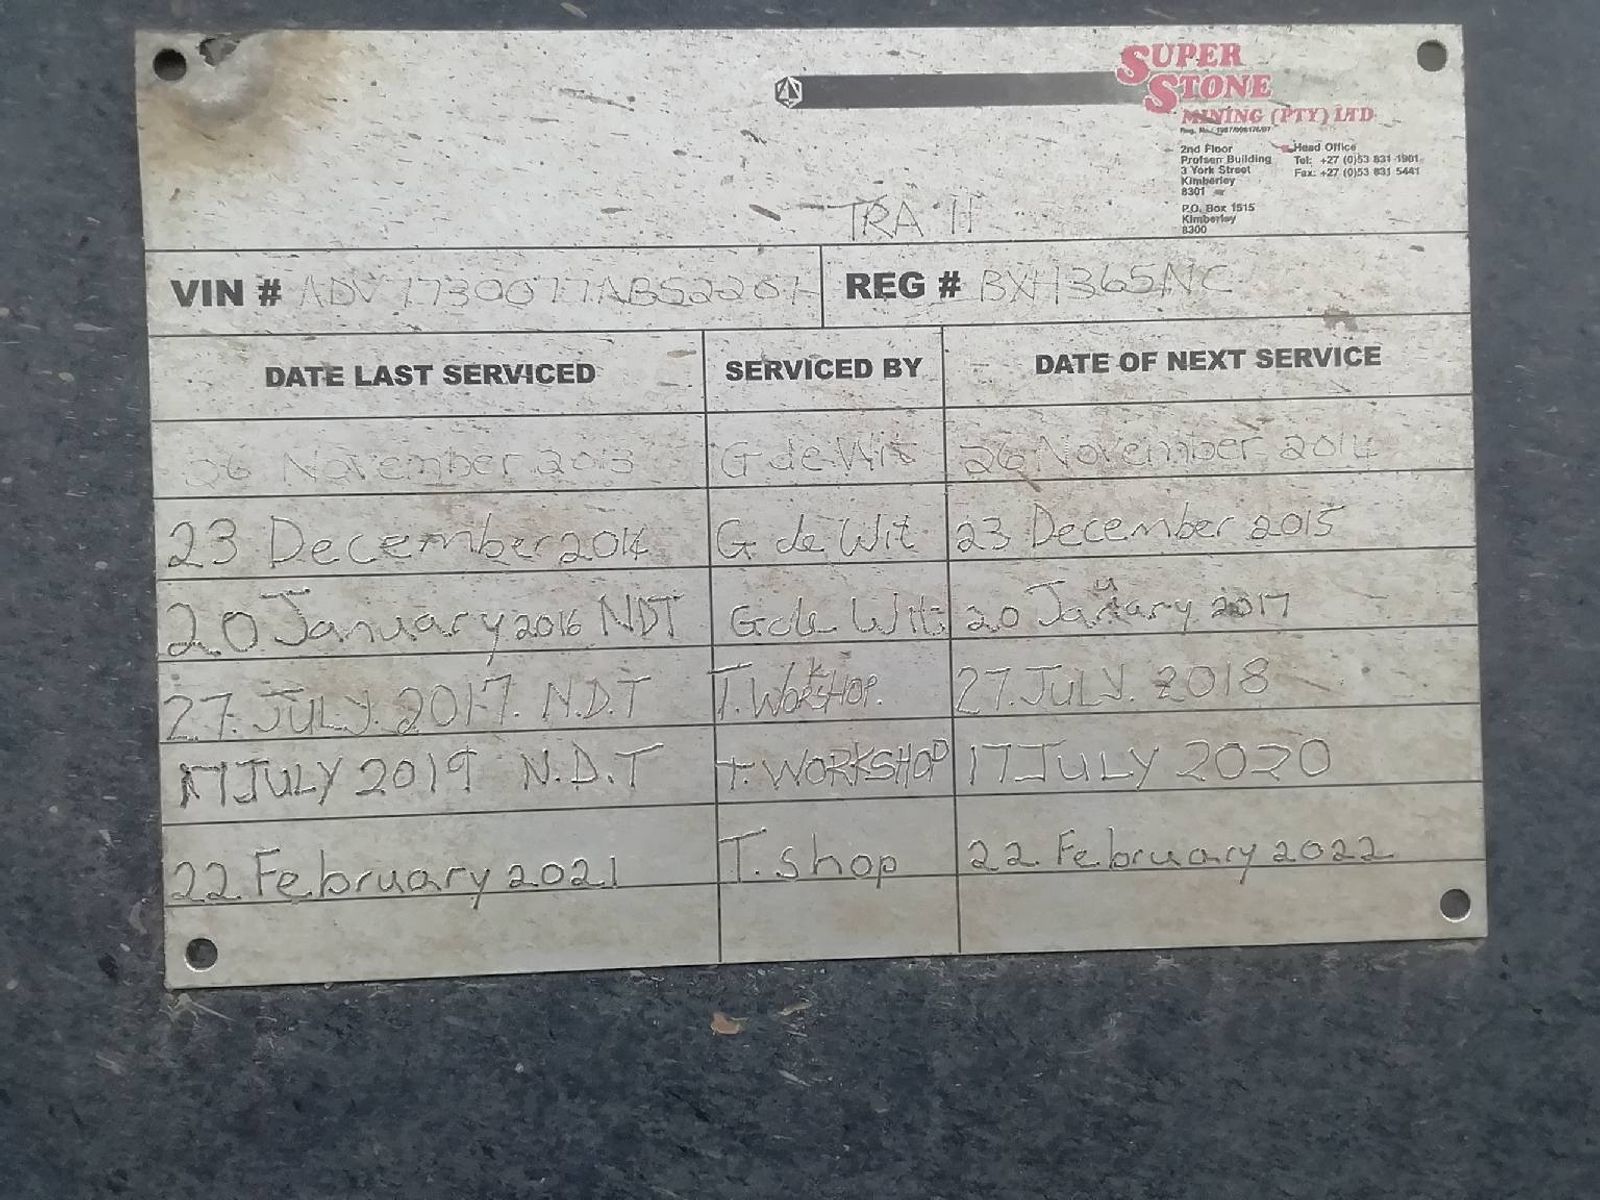 SUPER
STONE
MINING (PTY) LTD
2nd Floor
Profsen Building
3 York Street
Kimberley
8301
Head Office
Tel: +27 (0)53 831 1901
Fax: +27 (0)53 831 5441
P.O. Box 1515
Kimberley
8300
TRA 11
VIN #
REG # BXH365NC
DATE LAST SERVICED SERVICED BY DATE OF NEXT SERVICE
November 2013 G de Wit 26 November 2014
23 December 2014 G de Wit 23 December 2015
20 January 2016 NDT G de Wit 20 January 2017
27. JULY. 2017. N.D.T T. WORKSHOP. 27. JULY. 2018
17 JULY 2019 N.D.T T. WORKSHOP 17 JULY 2020
22 February 2021 T. Shop 22 February 2022